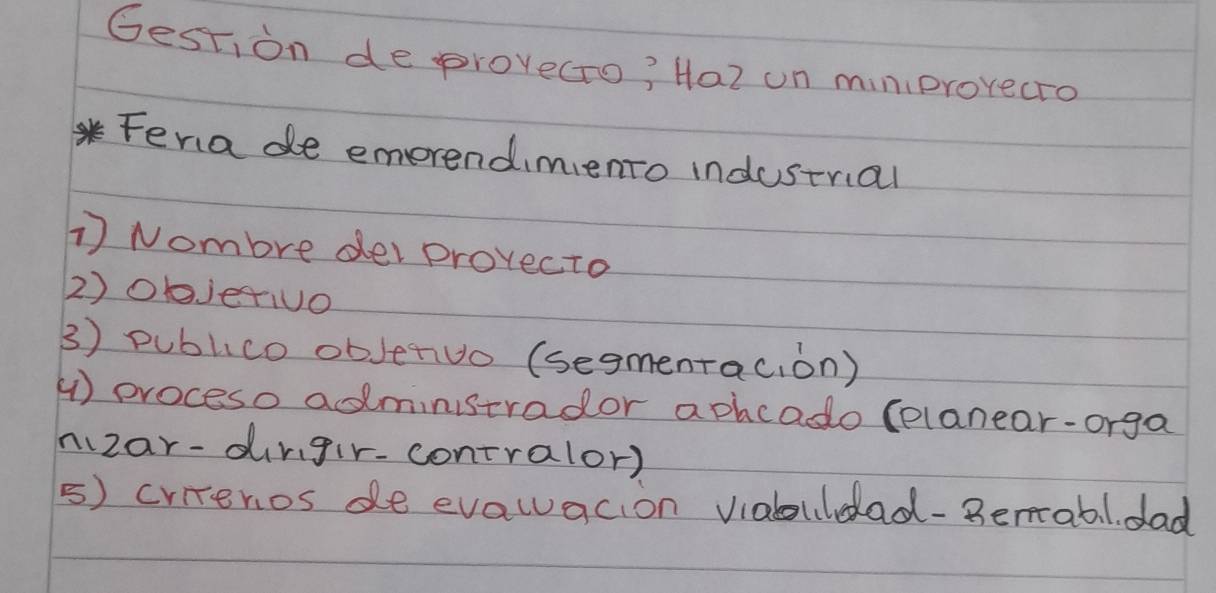 Gestión de proyecto; Haz un miniproyecto
* Feria de emprendimiento industrial
1) Nombre del proyecto
2) Objetivo
3) publico objetivo (segmentación)
4) proceso administrador aplicado (planear-orga
nizar-dirigir-contralor)
5) criterios de evaluación viabilidad-Rentabilidad